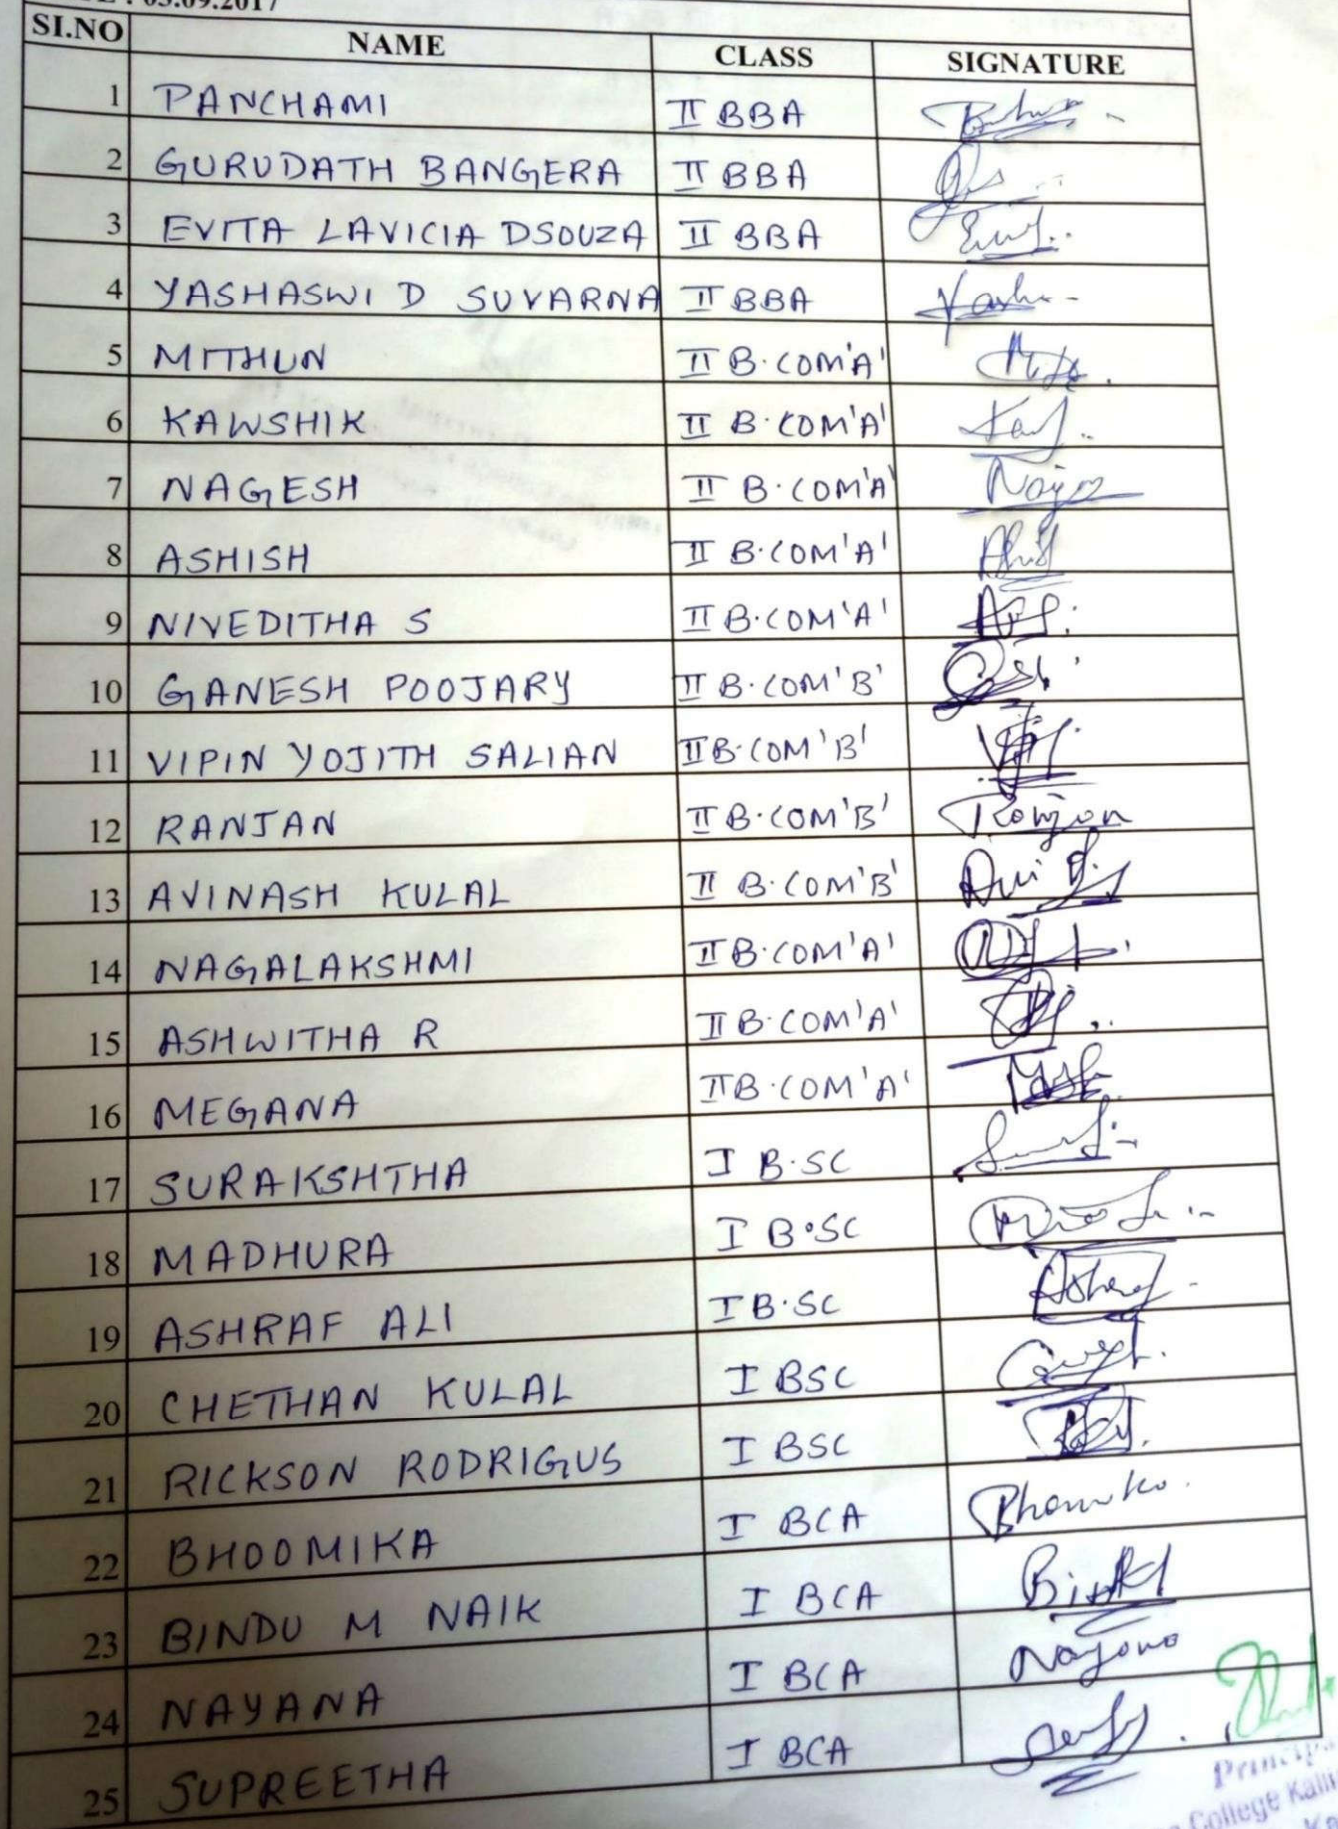 : 05.09.2017
SI.NO NAME CLASS SIGNATURE
1 PANCHAMI II BBA
2 GURUDATH BANGERA II BBA
3 EVITA LAVICIA DSOUZA II BBA
4 YASHASWI D SUVARNA II BBA
5 MITHUN II B.COM'A'
6 KAWSHIK II B.COM'A'
7 NAGESH II B.COM'A'
8 ASHISH II B.COM'A'
9 NIVEDITHA S II B.COM'A'
10 GANESH POOJARY II B.COM'B'
11 VIPIN YOJITH SALIAN II B.COM'B'
12 RANJAN II B.COM'B' Ranjan
13 AVINASH KULAL II B.COM'B'
14 NAGALAKSHMI II B.COM'A'
15 ASHWITHA R II B.COM'A'
16 MEGANA II B.COM'A'
17 SURAKSHTHA I B.SC
18 MADHURA I B.SC
19 ASHRAF ALI I B.SC
20 CHETHAN KULAL I BSC
21 RICKSON RODRIGUS I BSC
22 BHOOMIKA I BCA Bhoomika
23 BINDU M NAIK I BCA
24 NAYANA I BCA Nayana
25 SUPREETHA I BCA
Princip
College Kalli